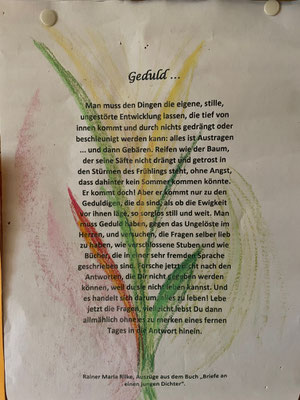 Geduld ...
Man muss den Dingen die eigene, stille,
ungestörte Entwicklung lassen, die tief von
innen kommt und durch nichts gedrängt oder
beschleunigt werden kann: alles ist Austragen
... und dann Gebären. Reifen wie der Baum,
der seine Säfte nicht drängt und getrost in
den Stürmen des Frühlings steht, ohne Angst,
dass dahinter kein Sommer kommen könnte.
Er kommt doch! Aber er kommt nur zu den
Geduldigen, die da sind, als ob die Ewigkeit
vor ihnen läge, so sorglos still und weit. Man
muss Geduld haben, gegen das Ungelöste im
Herzen, und versuchen, die Fragen selber lieb
zu haben, wie verschlossene Stuben und wie
Bücher, die in einer sehr fremden Sprache
geschrieben sind. Forsche jetzt nicht nach den
Antworten, die Dir nicht gegeben werden
können, weil du sie nicht leben kannst. Und
es handelt sich darum, alles zu leben! Lebe
jetzt die Fragen, vielleicht lebst Du dann
allmählich ohne es zu merken eines fernen
Tages in die Antwort hinein.
Rainer Maria Rilke, Auszüge aus dem Buch „Briefe an
einen jungen Dichter".